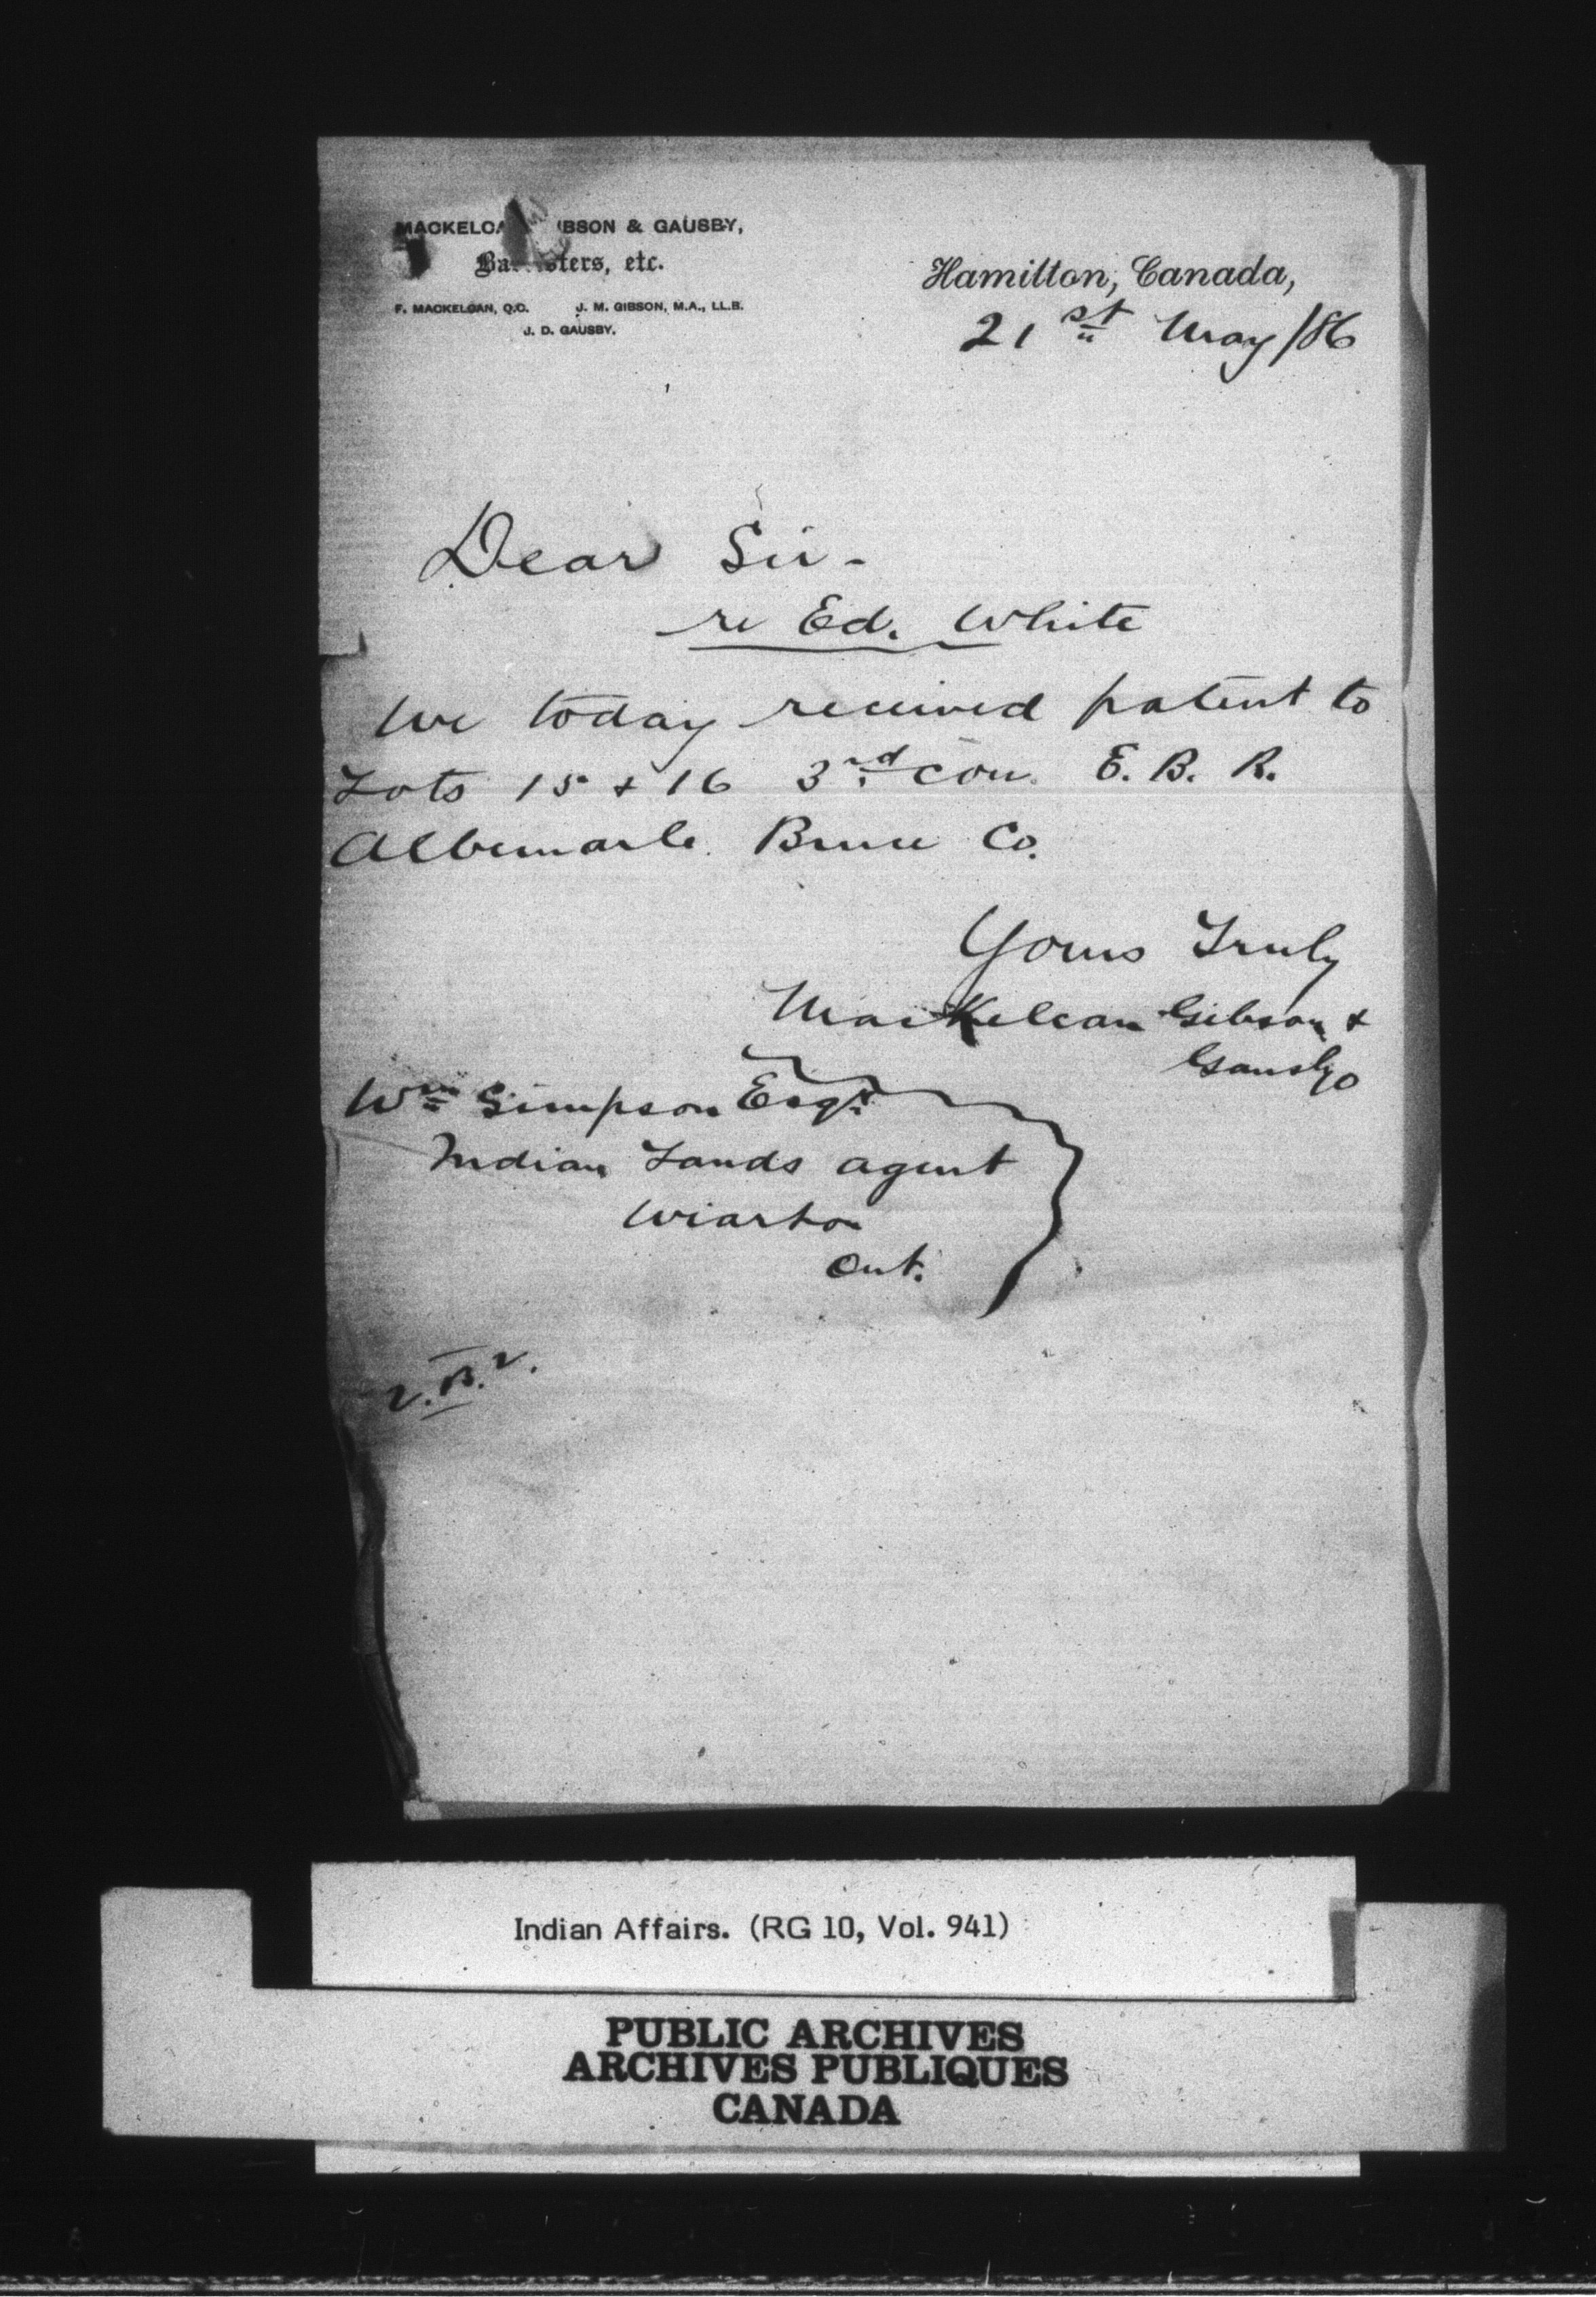 MACKELCAN, GIBSON & GAUSBY,
Barristers, etc.
F. MACKELCAN, Q.C. J. M. GIBSON, M.A., LL.B.
J. D. GAUSBY.
Hamilton, Canada,
21st May /86
Dear Sir -
re Ed. White
We today received patent to
Lots 15 & 16 3rd con. E. B. R.
Albemarle Bruce Co.
Yours Truly
MacKelcan Gibson &
Gausby
Wm Simpson Esqr
Indian Lands agent
Wiarton
Ont.
Indian Affairs. (RG 10, Vol. 941)
PUBLIC ARCHIVES
ARCHIVES PUBLIQUES
CANADA